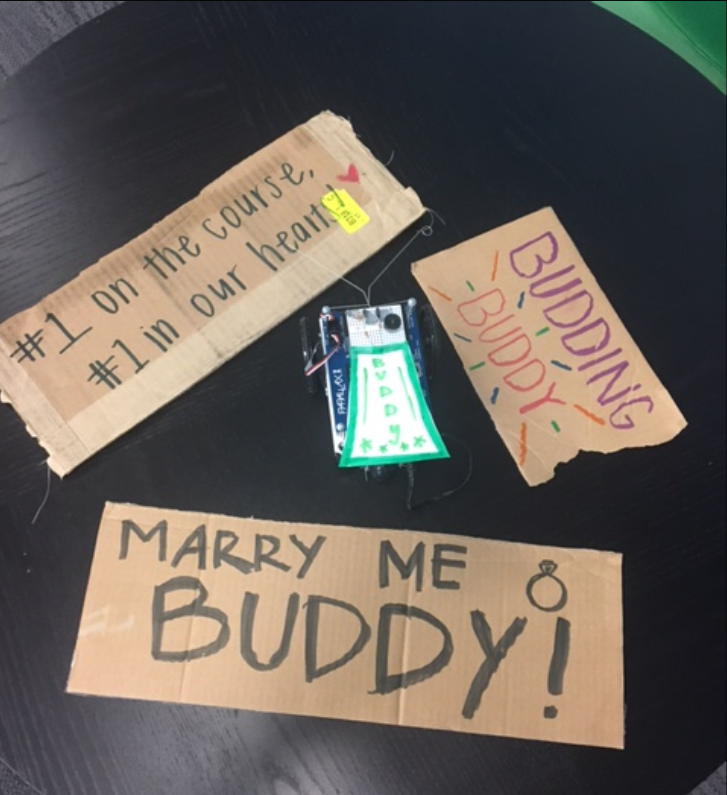 #1 on the course,
#1 in our heart
BUDDING
BUDDY
BUDDY
MARRY ME
BUDDY!